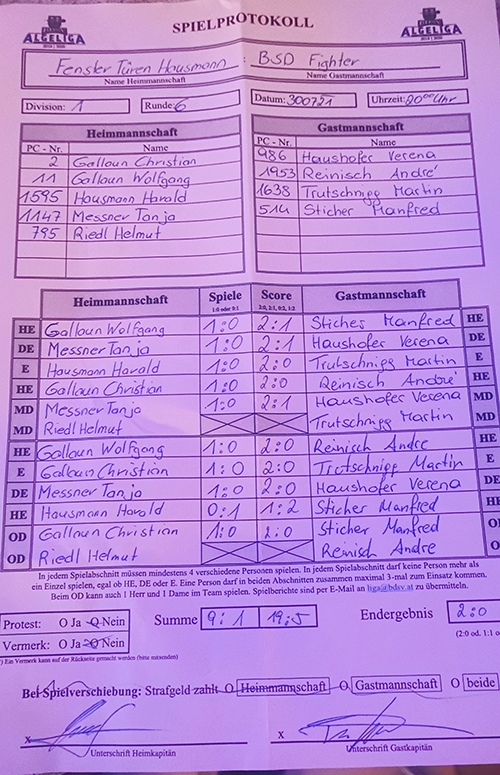 SPIELPROTOKOLL
ALGELIGA ALGELIGA
Fenster Türen Hausmann : BSD Fighter
Name Heimmannschaft Name Gastmannschaft
Division: 1 Runde: 6 Datum: 300721 Uhrzeit: 20⁰⁰Uhr
Heimmannschaft Gastmannschaft
PC - Nr. Name PC - Nr. Name
2 Galloun Christian 986 Haushofer Verena
11 Galloun Wolfgang 1953 Reinisch André
1595 Hausmann Harald 1638 Trutschnigg Martin
1147 Messner Tanja 514 Sticher Manfred
795 Riedl Helmut
Heimmannschaft Spiele Score Gastmannschaft
1:0 oder 0:1 2:0, 2:1, 0:2, 1:2
HE Galloun Wolfgang 1:0 2:1 Sticher Manfred HE
DE Messner Tanja 1:0 2:1 Haushofer Verena DE
E Hausmann Harald 1:0 2:0 Trutschnigg Martin E
HE Galloun Christian 1:0 2:0 Reinisch André HE
MD Messner Tanja 1:0 2:1 Haushofer Verena MD
MD Riedl Helmut Trutschnigg Martin MD
HE Galloun Wolfgang 1:0 2:0 Reinisch Andre HE
E Galloun Christian 1:0 2:0 Trutschnigg Martin E
DE Messner Tanja 1:0 2:0 Haushofer Verena DE
HE Hausmann Harald 0:1 1:2 Sticher Manfred HE
OD Galloun Christian 1:0 2:0 Sticher Manfred OD
OD Riedl Helmut Reinisch Andre OD
In jedem Spielabschnitt müssen mindestens 4 verschiedene Personen spielen. In jedem Spielabschnitt darf keine Person mehr als
ein Einzel spielen, egal ob HE, DE oder E. Eine Person darf in beiden Abschnitten zusammen maximal 3-mal zum Einsatz kommen.
Beim OD kann auch 1 Herr und 1 Dame im Team spielen. Spielberichte sind per E-Mail an liga@bdsv.at zu übermitteln.
Protest: O Ja O Nein Summe 9:1 19:5 Endergebnis 2:0
Vermerk: O Ja O Nein (2:0 od. 1:1 o
*) Ein Vermerk kann auf der Rückseite gemacht werden (bitte ankreuzen)
Bei Spielverschiebung: Strafgeld zahlt O Heimmannschaft O Gastmannschaft O beide
x x
Unterschrift Heimkapitän Unterschrift Gastkapitän